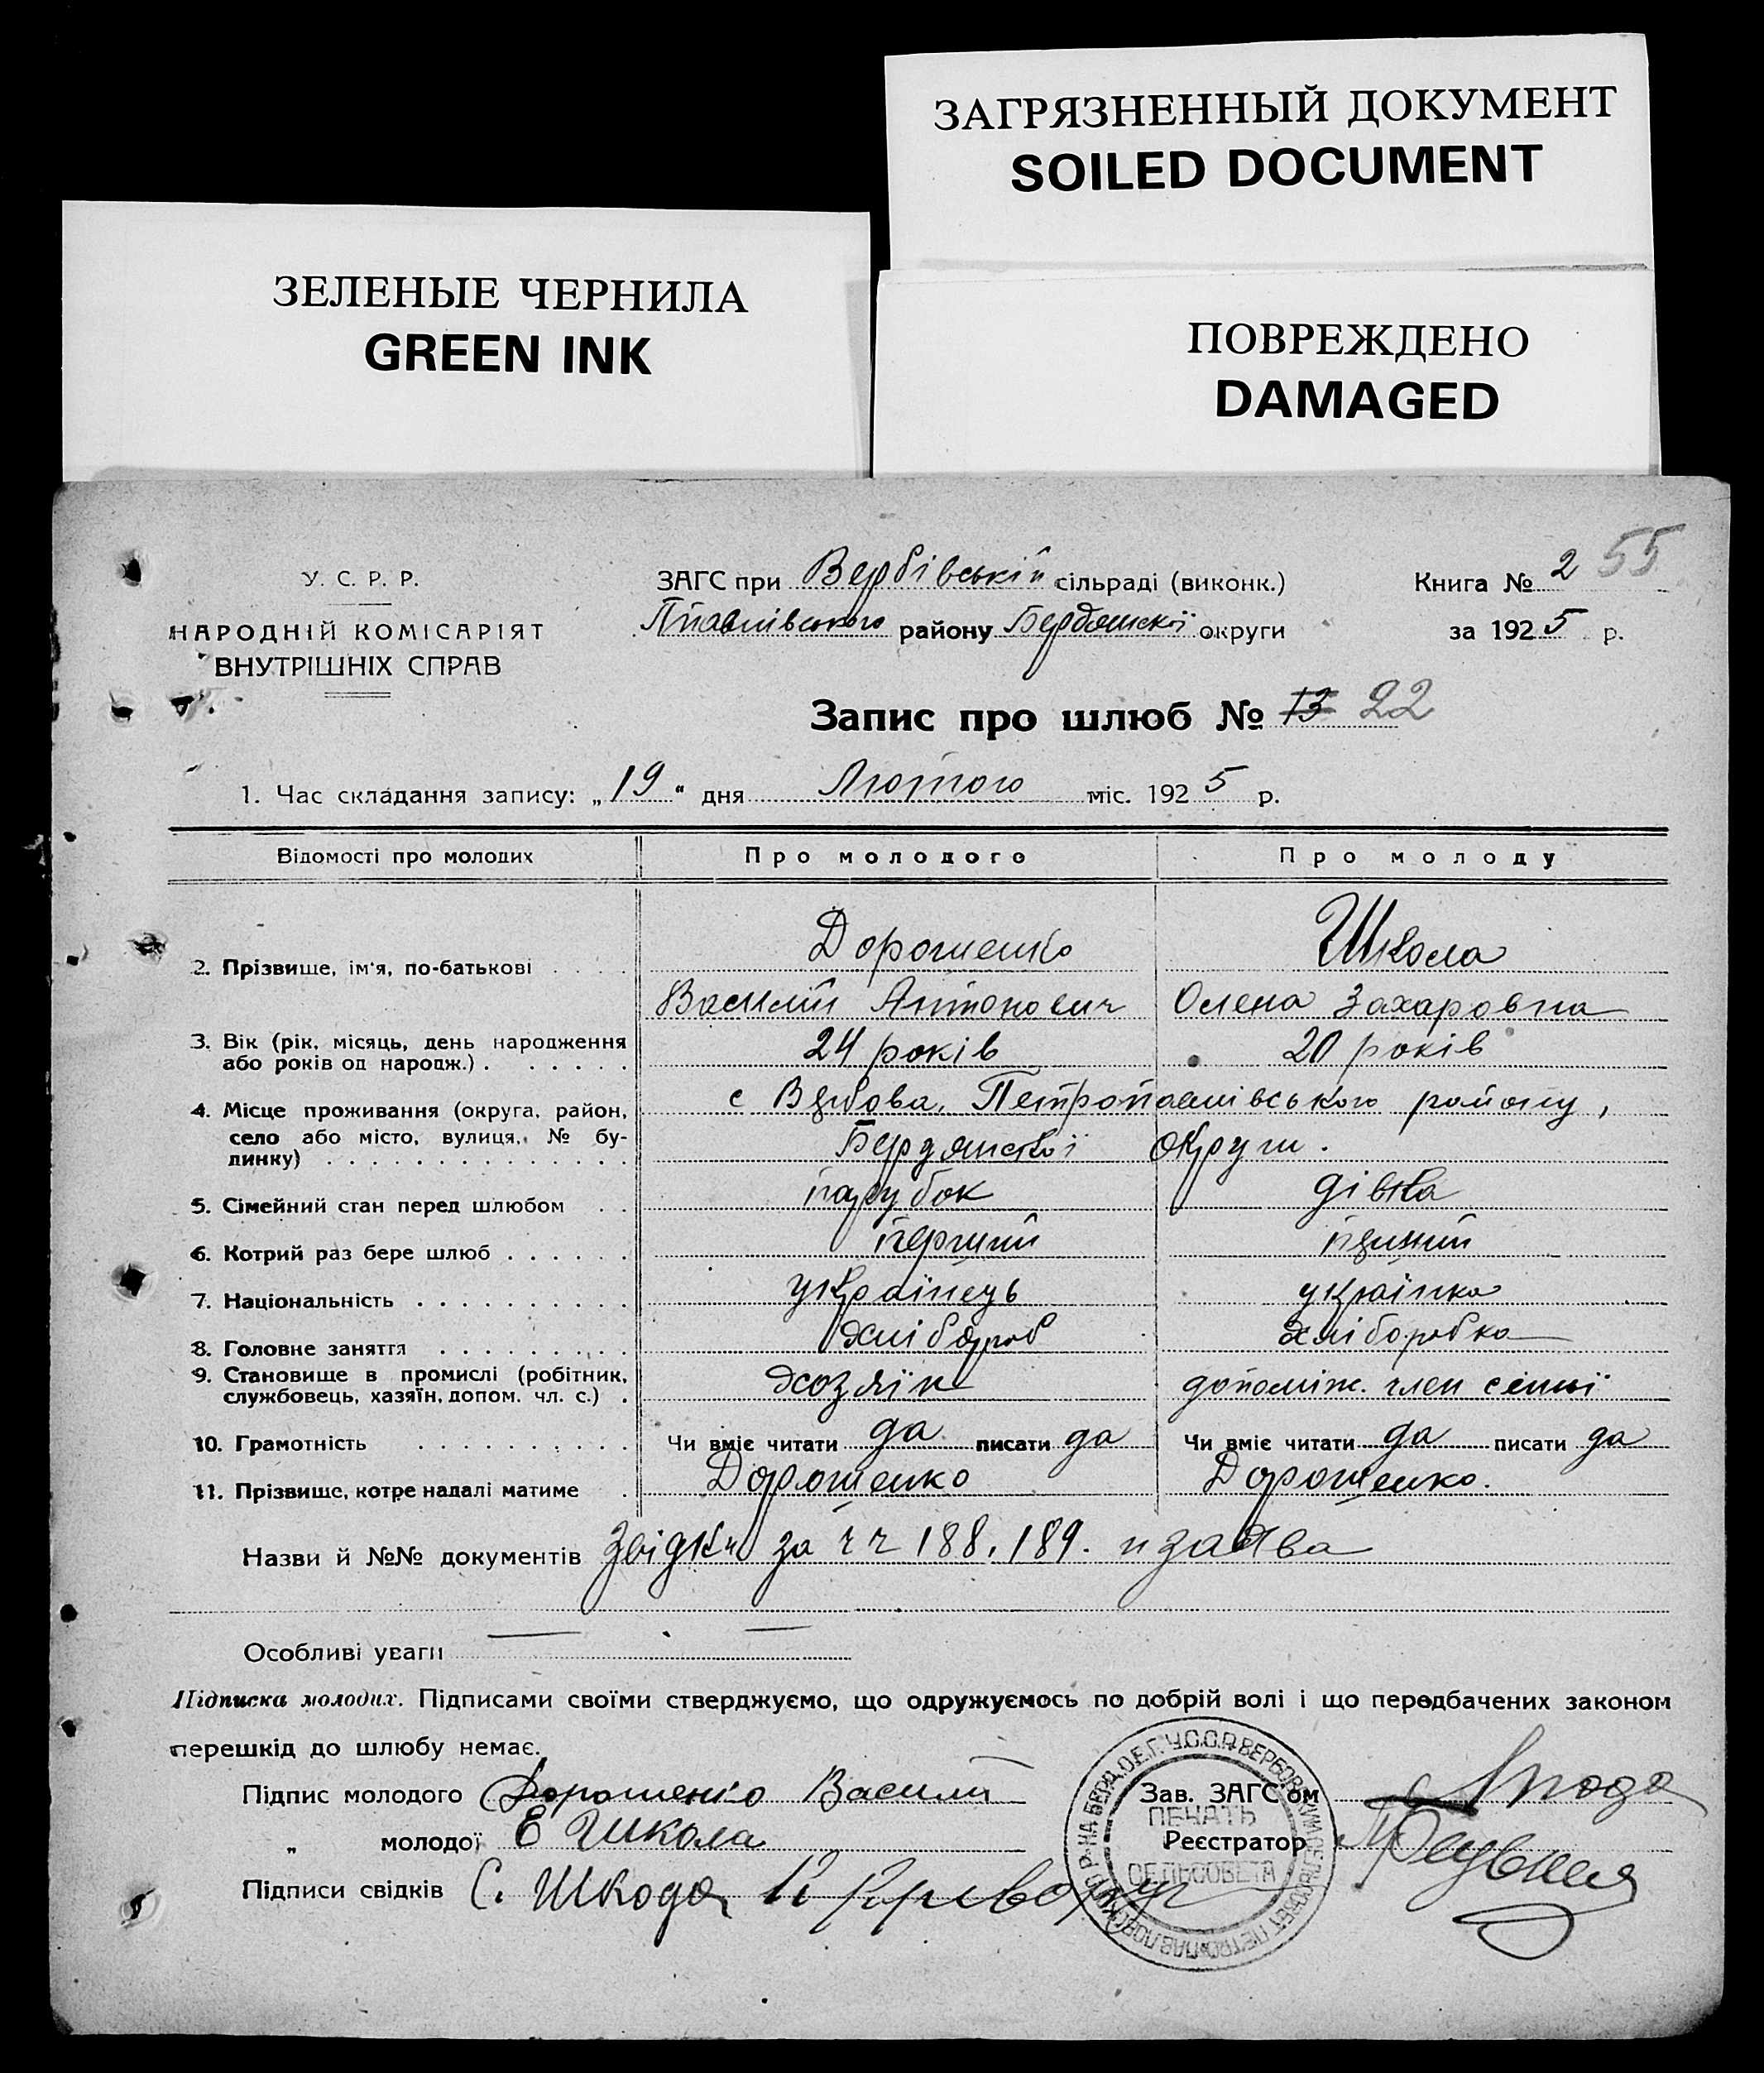 ЗАГРЯЗНЕННЫЙ ДОКУМЕНТ
SOILED DOCUMENT
ЗЕЛЕНЫЕ ЧЕРНИЛА
GREEN INK
ПОВРЕЖДЕНО
DAMAGED
У. С. Р. Р.
НАРОДНІЙ КОМІСАРІЯТ
ВНУТРІШНІХ СПРАВ
ЗАГС при Вербівській сільраді (виконк.)
Ппавлівського району Бердянської округи
Книга № 2 55
за 1925 р.
Запис про шлюб № 13 22
1. Час складання запису: „19“ дня Лютого міс. 1925 р.
Відомості про молодих Про молодого Про молоду
2. Прізвище, ім'я, по-батькові . . . . Дорошенко Школа
Василій Антонович Олена Захаровна
3. Вік (рік, місяць, день народження або років од народж.) . . . . . . 24 років 20 років
4. Місце проживання (округа, район, село або місто, вулиця, № будинку) . . . . . . . . . . . . . . с Вербова, Петропавлівського району,
Бердянської Округи.
5. Сімейний стан перед шлюбом . . парубок дівка
6. Котрий раз бере шлюб . . . . . . перший перший
7. Національність . . . . . . . . . . українець українка
8. Головне заняття . . . . . . . . . хлібороб хліборобка
9. Становище в промислі (робітник, службовець, хазяїн, допом. чл. с.) . хозяїн допоміж. член семьї
10. Грамотність . . . . . . . . . . Чи вміє читати да писати да Чи вміє читати да писати да
11. Прізвище, котре надалі матиме . Дорошенко Дорошенко.
Назви й №№ документів звідки за ч ч 188, 189. и заява
Особливі уваги
Підписка молодих. Підписами своїми стверджуємо, що одружуємось по добрій волі і що передбачених законом
перешкід до шлюбу немає.
Підпис молодого Дорошенко Василий
„ молодої Е Школа
Підписи свідків С. Шкода
Зав. ЗАГС'ом
Реєстратор
ПЕЧАТЬ
СЕЛЬСОВЕТА